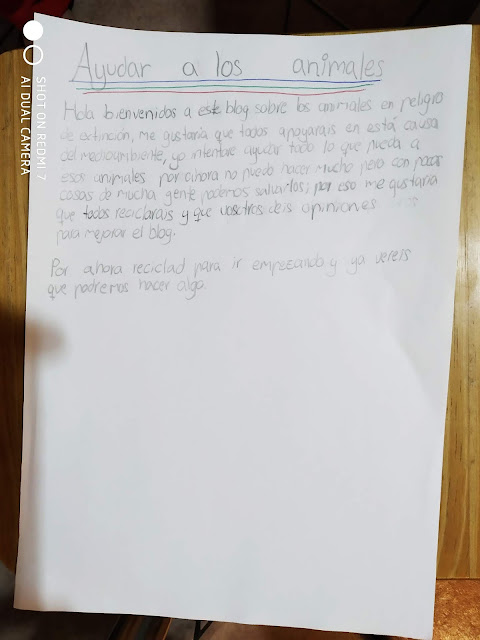 Ayudar a los animales
Hola bienvenidos a este blog sobre los animales en peligro
de extinción, me gustaría que todos apoyarais en está causa
del medioambiente, yo intentare ayudar todo lo que pueda a
esos animales por ahora no puedo hacer mucho pero con pocas
cosas de mucha gente podemos salvarlos, por eso me gustaria
que todos reciclarais y que vosotros deis opiniones
para mejorar el blog.
Por ahora reciclad para ir empezando y ya vereis
que podremos hacer algo.
SHOT ON REDMI 7
AI DUAL CAMERA